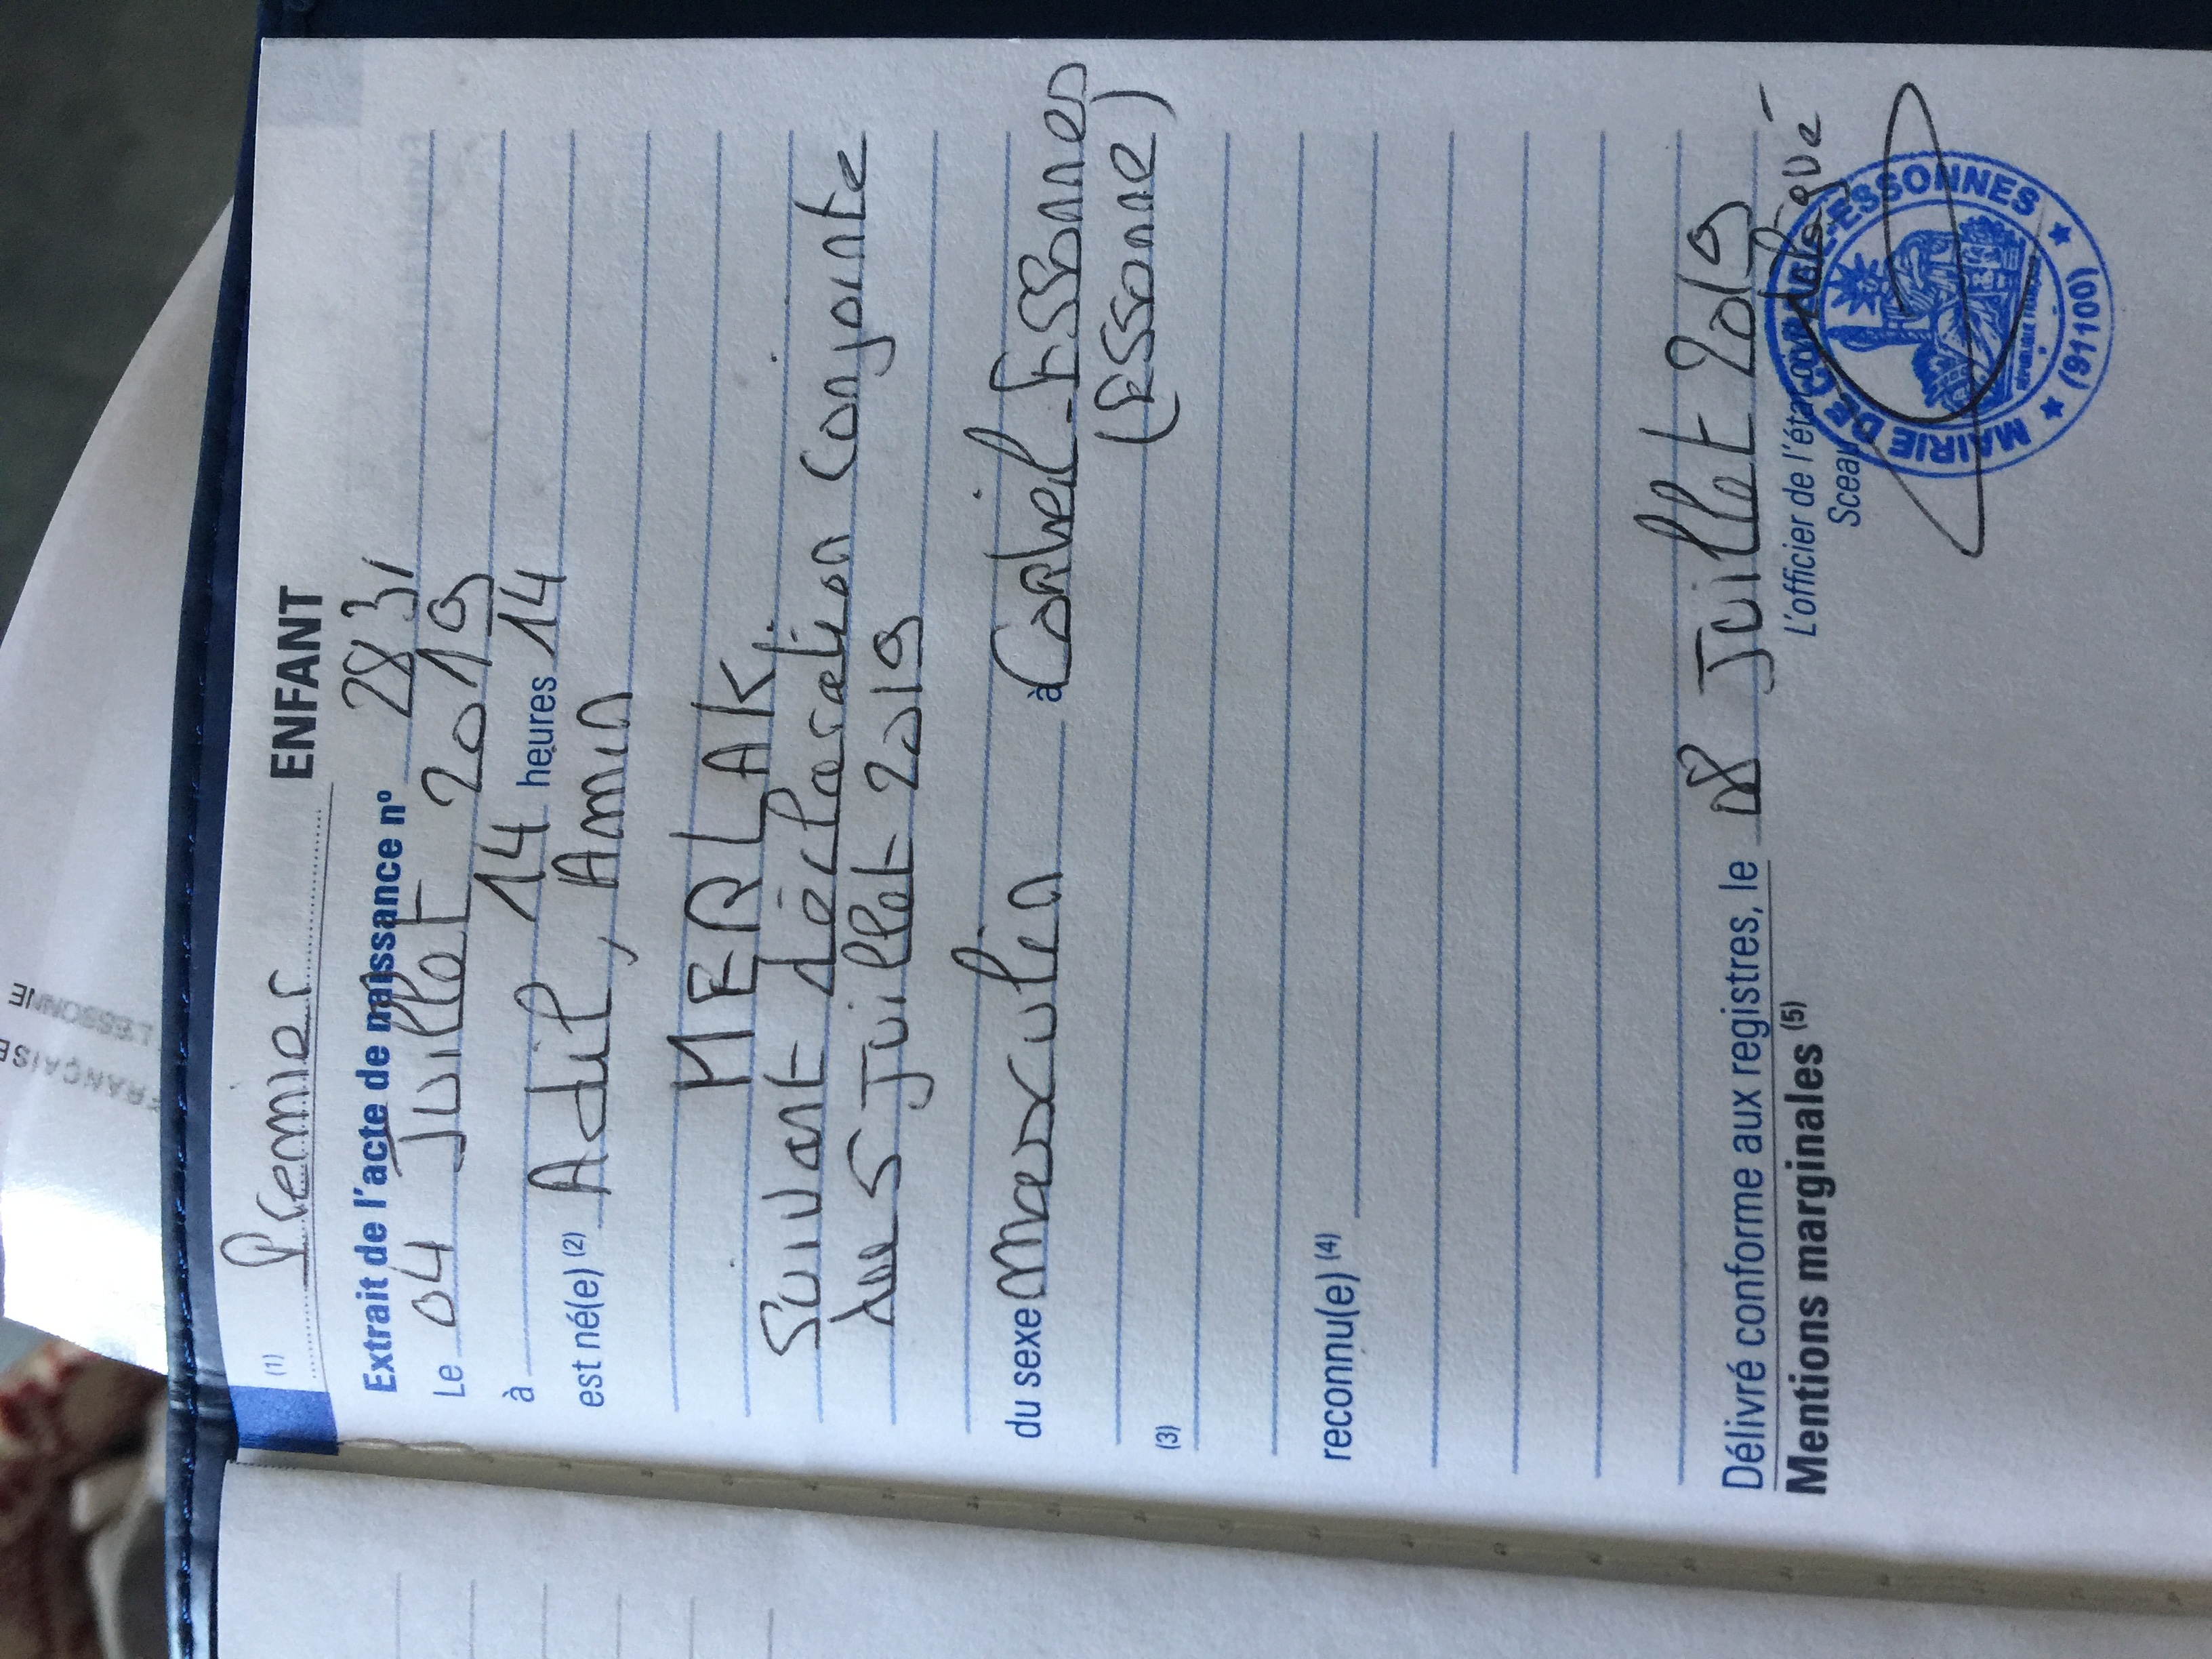 (1) Premier ENFANT
Extrait de l'acte de naissance nº 2831
Le 04 Juillet 2019
à 14 heures 14
est né(e) (2) Adil, Amin
MERLAK
Suivant déclaration conjointe
du 5 Juillet 2019
du sexe masculin à Corbeil-Essonnes
(Essonne)
(3)
reconnu(e) (4)
Délivré conforme aux registres, le 8 Juillet 2019
Mentions marginales (5)
L'officier de l'état délégué
Sceau
MAIRIE DE CORBEIL-ESSONNES
(91100)
FRANÇAISE
L'ESSONNE